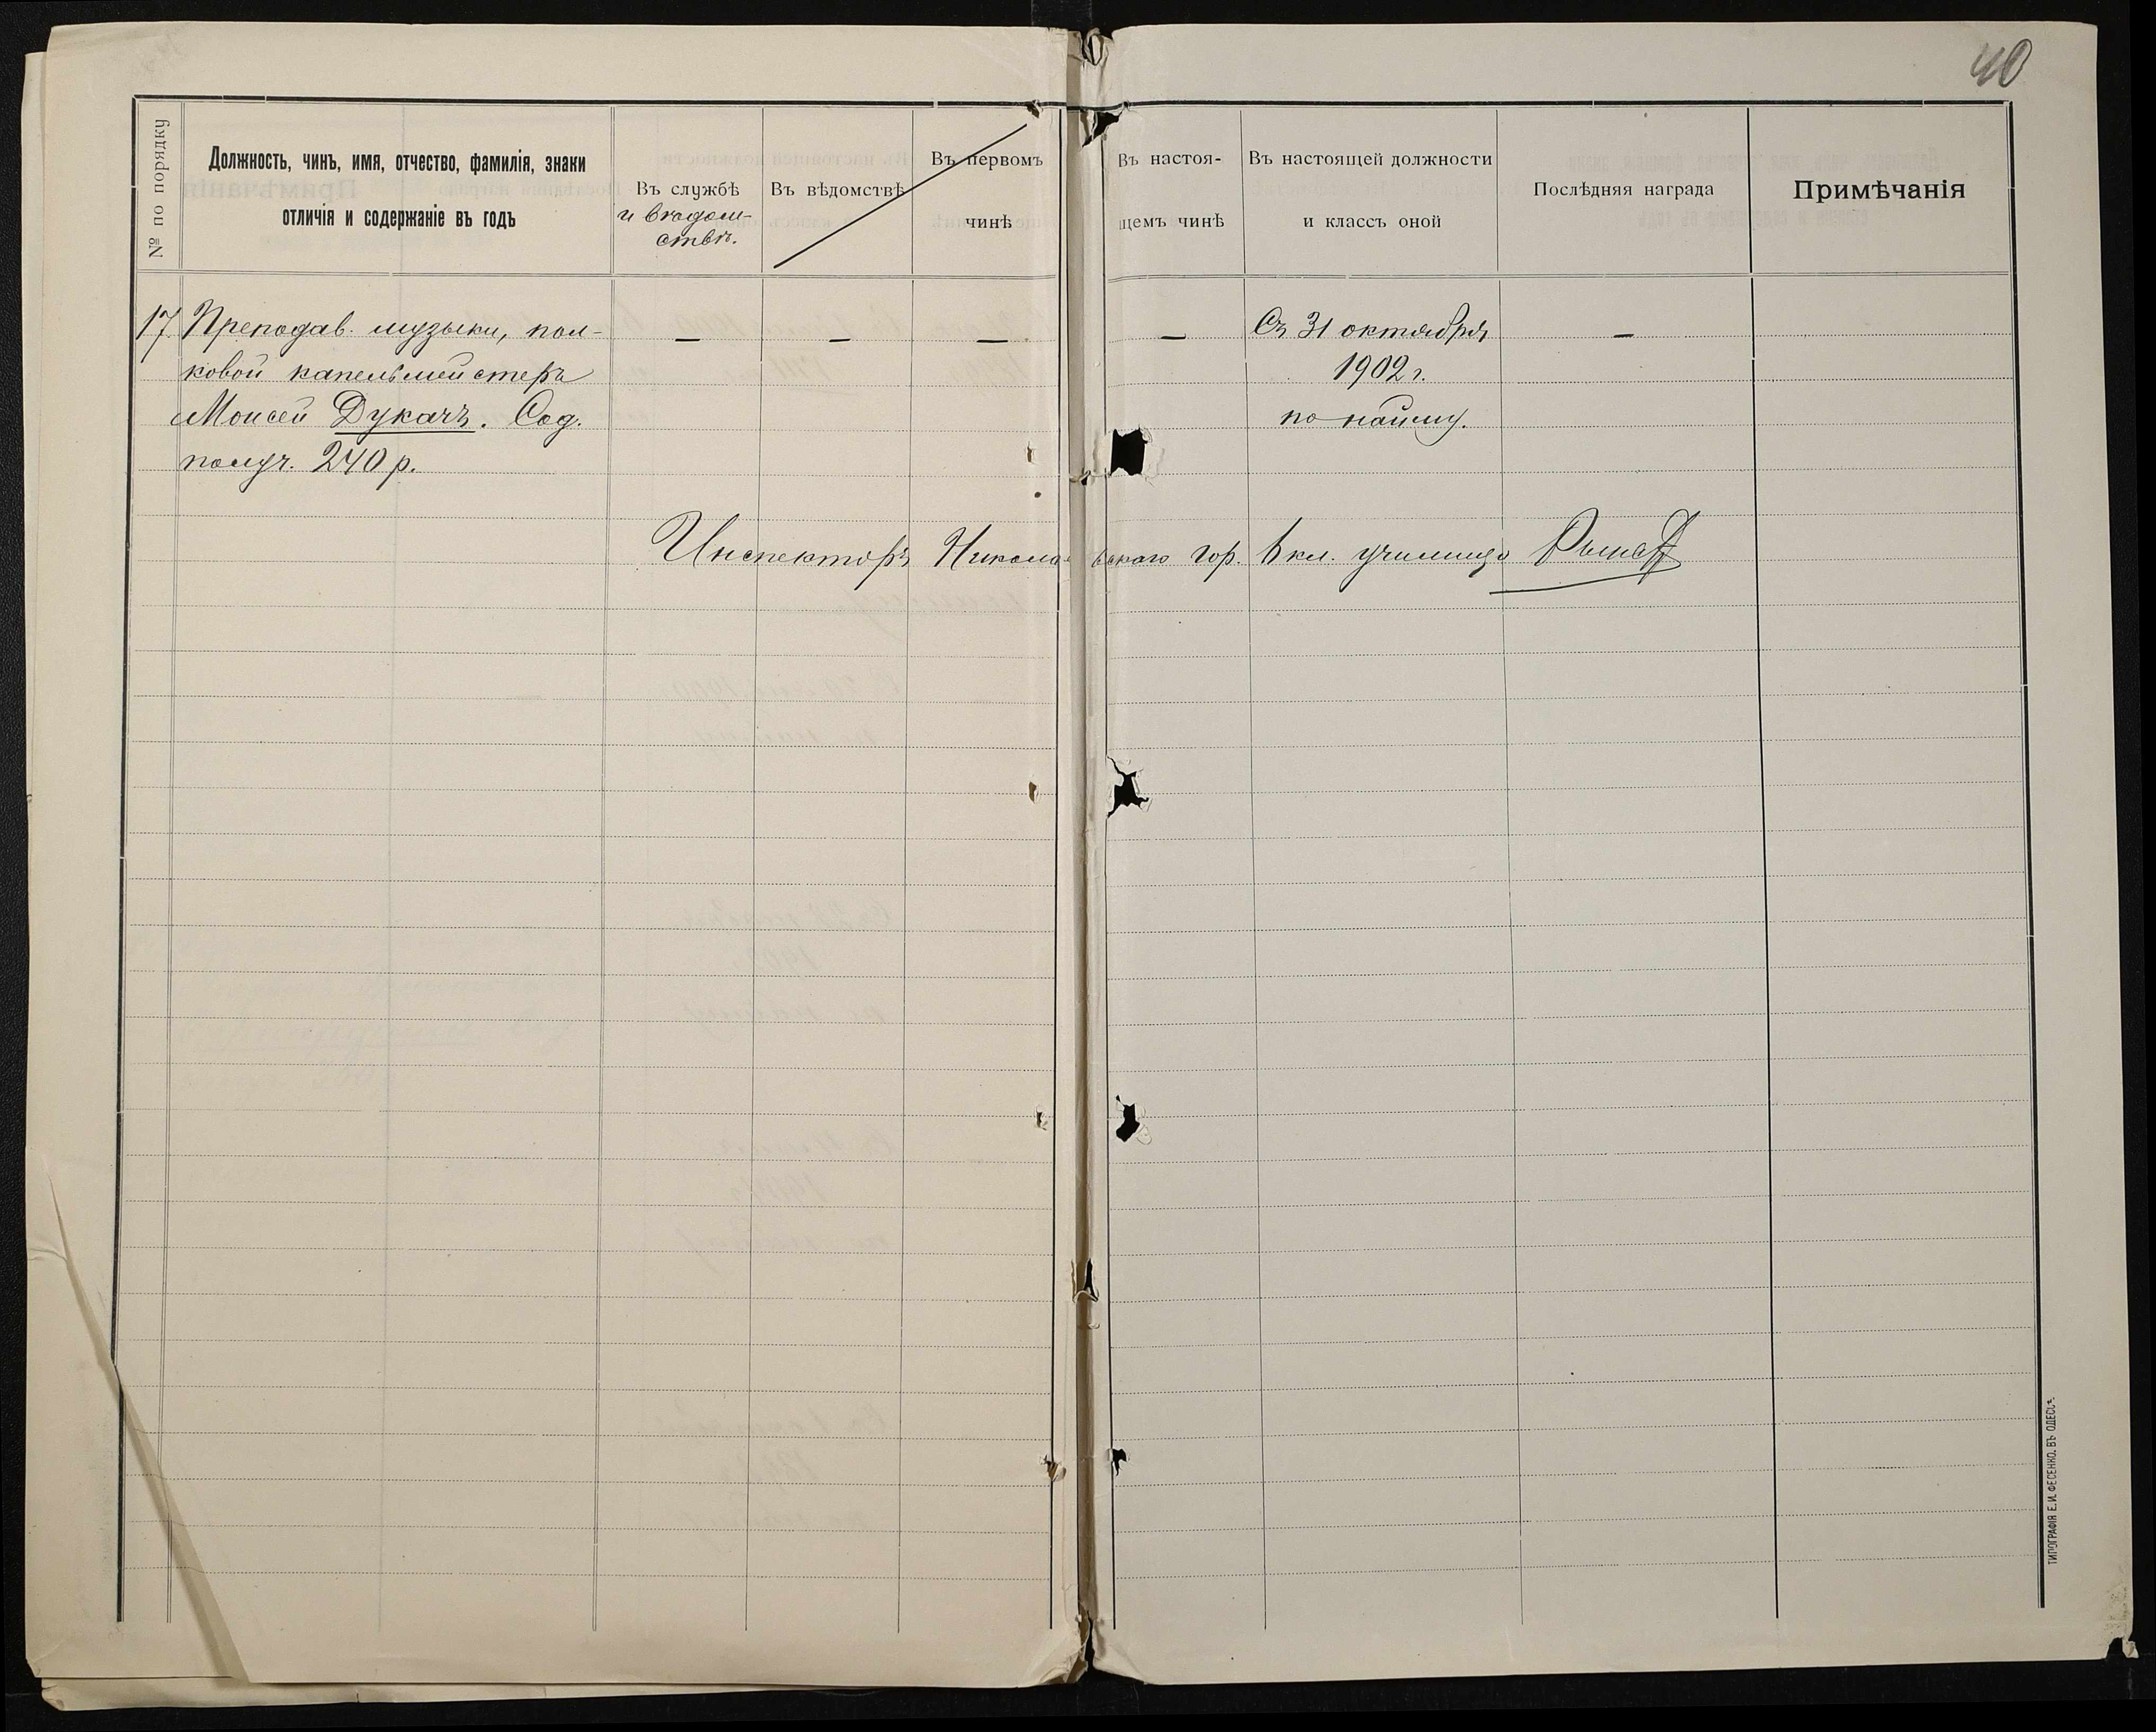 40
№ по порядку
Должность, чинъ, имя, отчество, фамилія, знаки
отличія и содержаніе въ годъ
Въ службѣ
и вѣдом-
ствѣ.
Въ вѣдомствѣ
Въ первомъ
чинѣ
Въ настоя-
щемъ чинѣ
Въ настоящей должности
и классъ оной
Послѣдняя награда
Примѣчанія
17 Преподав. музыки, пол-
ковой капельмейстеръ
Моисей Дукачъ. Сод.
получ. 240 р.
— — — —
Съ 31 октября
1902 г.
по найму.
—
Инспекторъ Никола вскаго гор. 6 кл. училища
ТИПОГРАФІЯ Е. И. ФЕСЕНКО, ВЪ ОДЕССѢ.